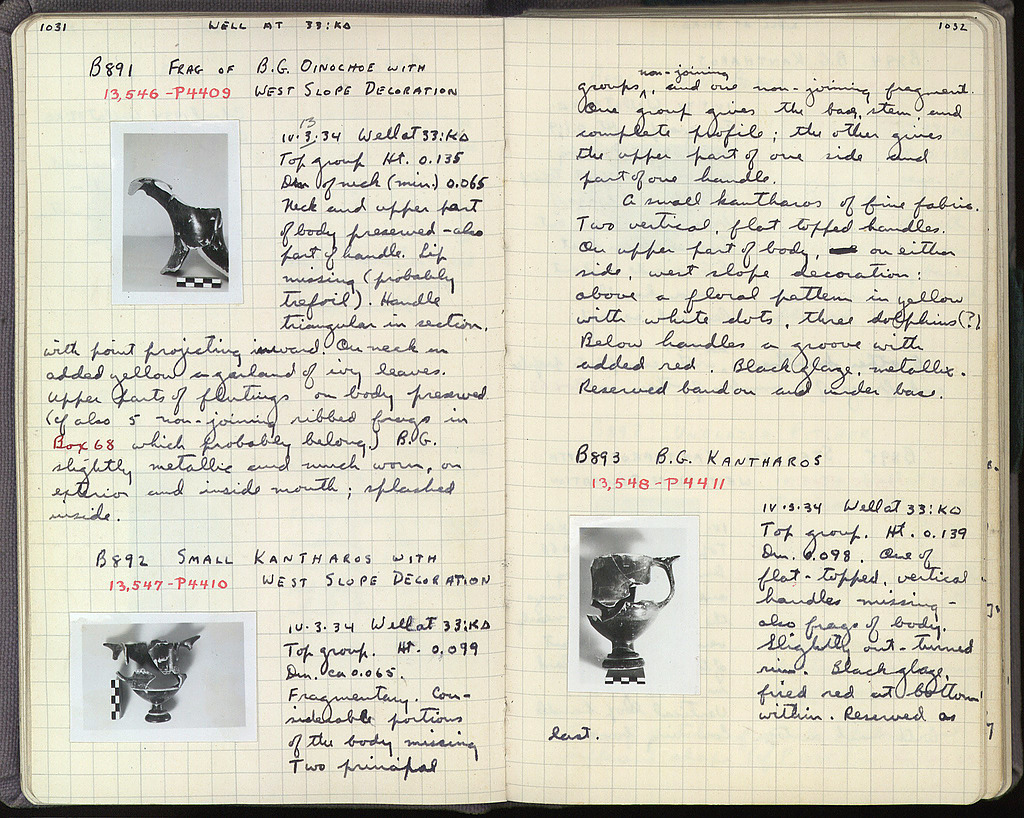 1031 WELL AT 33:ΚΔ
B891 FRAG OF B.G. OINOCHOE WITH
13,546-P4409 WEST SLOPE DECORATION
13
IV.3.34 Well at 33:ΚΔ
Top group Ht. 0.135
Dm of neck (min.) 0.065
Neck and upper part
of body preserved - also
part of handle. Lip
missing (probably
trefoil). Handle
triangular in section,
with point projecting inward. On neck in
added yellow a garland of ivy leaves.
Upper parts of flutings on body preserved
(cf also 5 non-joining ribbed frags in
Box 68 which probably belong.) B.G.
slightly metallic and much worn, on
exterior and inside mouth; splashed
inside.
B892 SMALL KANTHAROS WITH
13,547-P4410 WEST SLOPE DECORATION
IV.3.34 Well at 33:ΚΔ
Top group. Ht. 0.099
Dm. ca 0.065.
Fragmentary. Con-
siderable portions
of the body missing
Two principal
1032
non-joining
groups, and one non-joining fragment.
One group gives the base, stem, and
complete profile; the other gives
the upper part of one side and
part of one handle.
A small kantharos of fine fabric.
Two vertical, flat topped handles.
On upper part of body, on either
side, west slope decoration:
above a floral pattern in yellow
with white dots, three dolphins(?)
Below handles a groove with
added red. Black glaze, metallic.
Reserved band on and under base.
B893 B.G. KANTHAROS
13,548-P4411
IV.3.34 Well at 33:ΚΔ
Top group. Ht. 0.139
Dm. 0.098. One of
flat-topped, vertical
handles missing -
also frags of body.
Slightly out-turned
rim. Black glaze,
fired red at bottom
within. Reserved as
last.